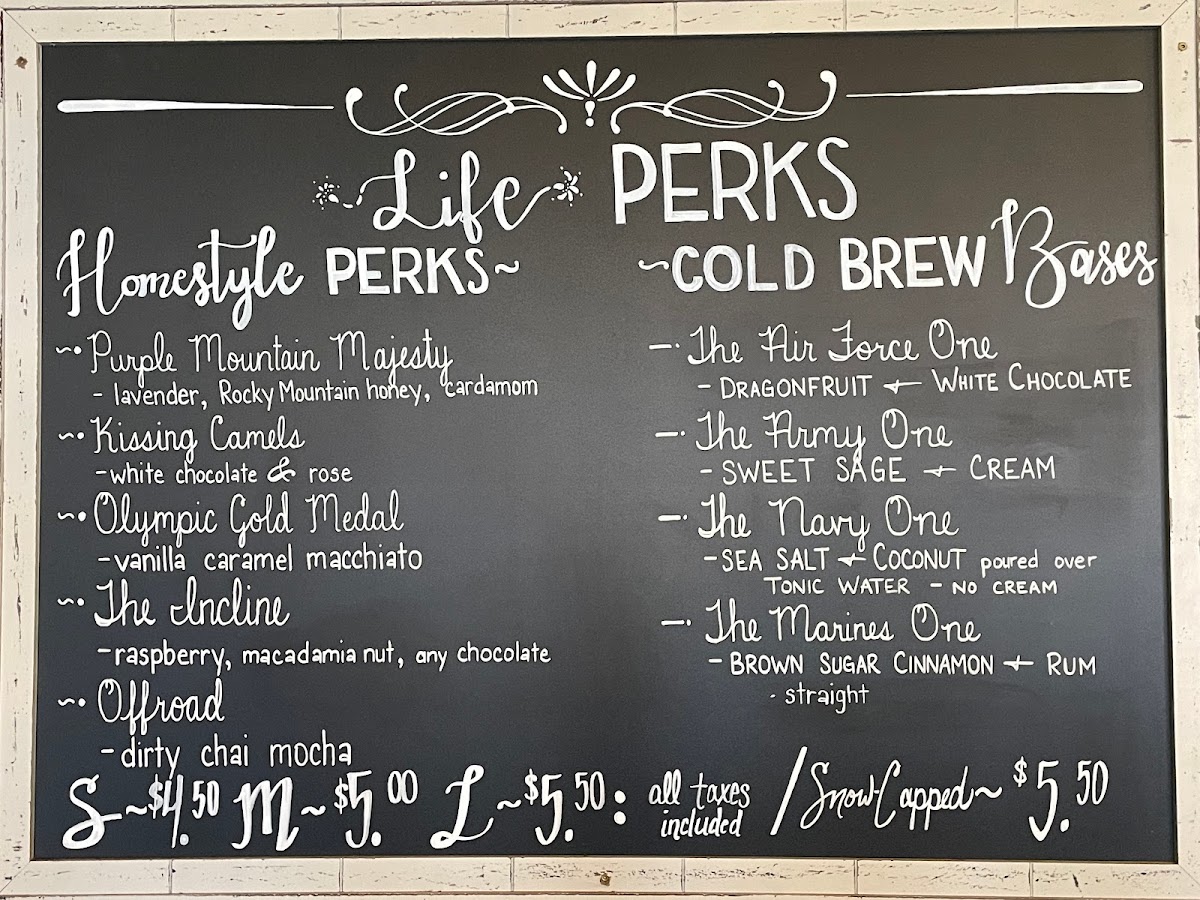 Life PERKS
Homestyle PERKS~
~• Purple Mountain Majesty
- lavender, Rocky Mountain honey, cardamom
~• Kissing Camels
- white chocolate & rose
~• Olympic Gold Medal
- vanilla caramel macchiato
~• The Incline
- raspberry, macadamia nut, any chocolate
~• Offroad
- dirty chai mocha
~COLD BREW Bases
~• The Air Force One
- DRAGONFRUIT + WHITE CHOCOLATE
~• The Army One
- SWEET SAGE + CREAM
~• The Navy One
- SEA SALT + COCONUT poured over
TONIC WATER - NO CREAM
~• The Marines One
- BROWN SUGAR CINNAMON + RUM
- straight
S~$4.50 M~$5.00 L~$5.50: all taxes included / Snow-Capped~ $5.50